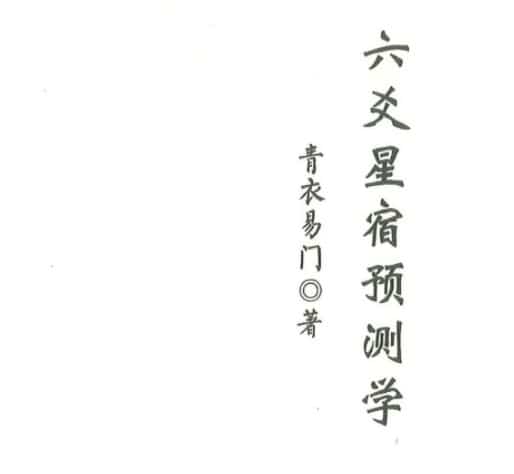 六爻星宿预测学
青衣易门◎著